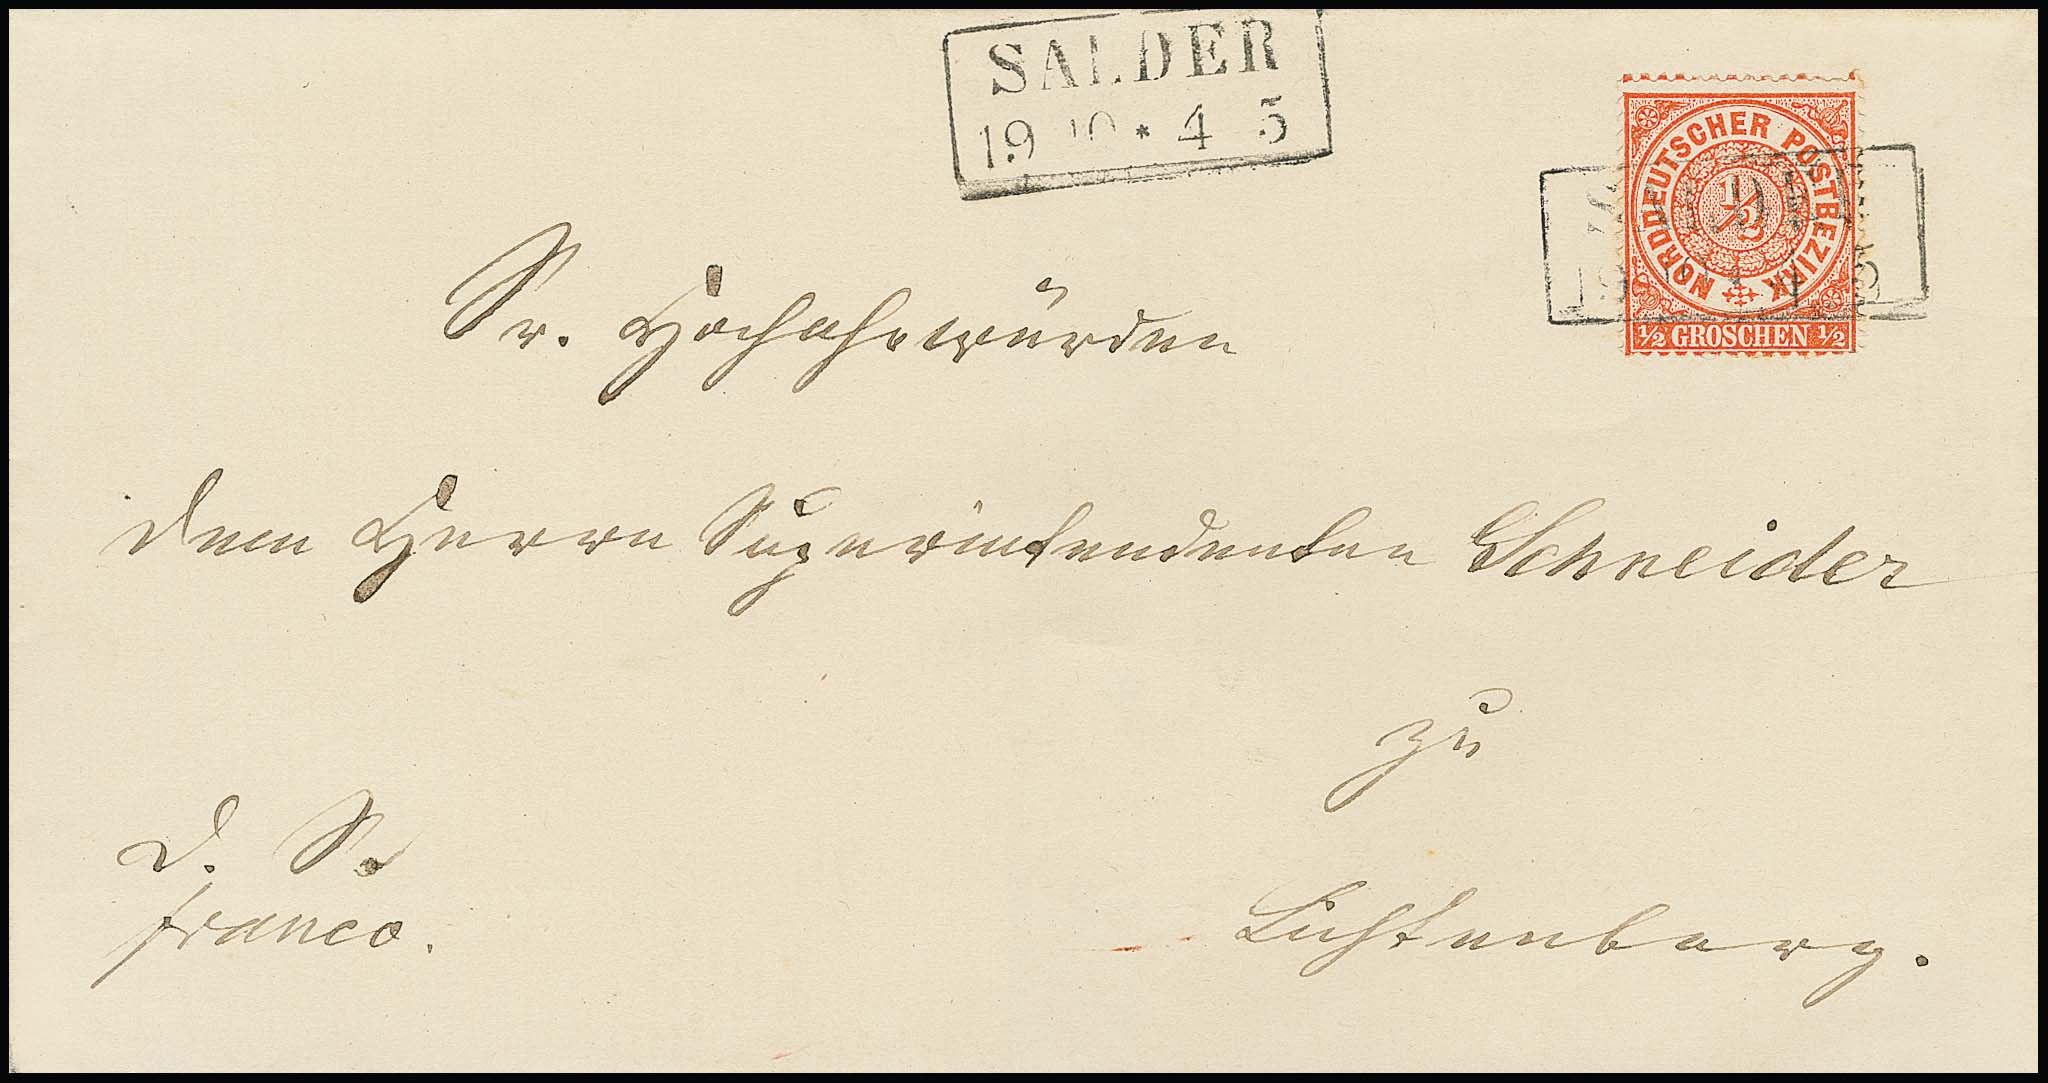 SALDER
19 10 * 4 5
NORDDEUTSCHER POSTBEZIRK
1/2
1/2 GROSCHEN 1/2
Sr. Hochehrwürden
dem Herrn Superintendenten Schneider
zu
D. S.
franco.
Lichtenberg.